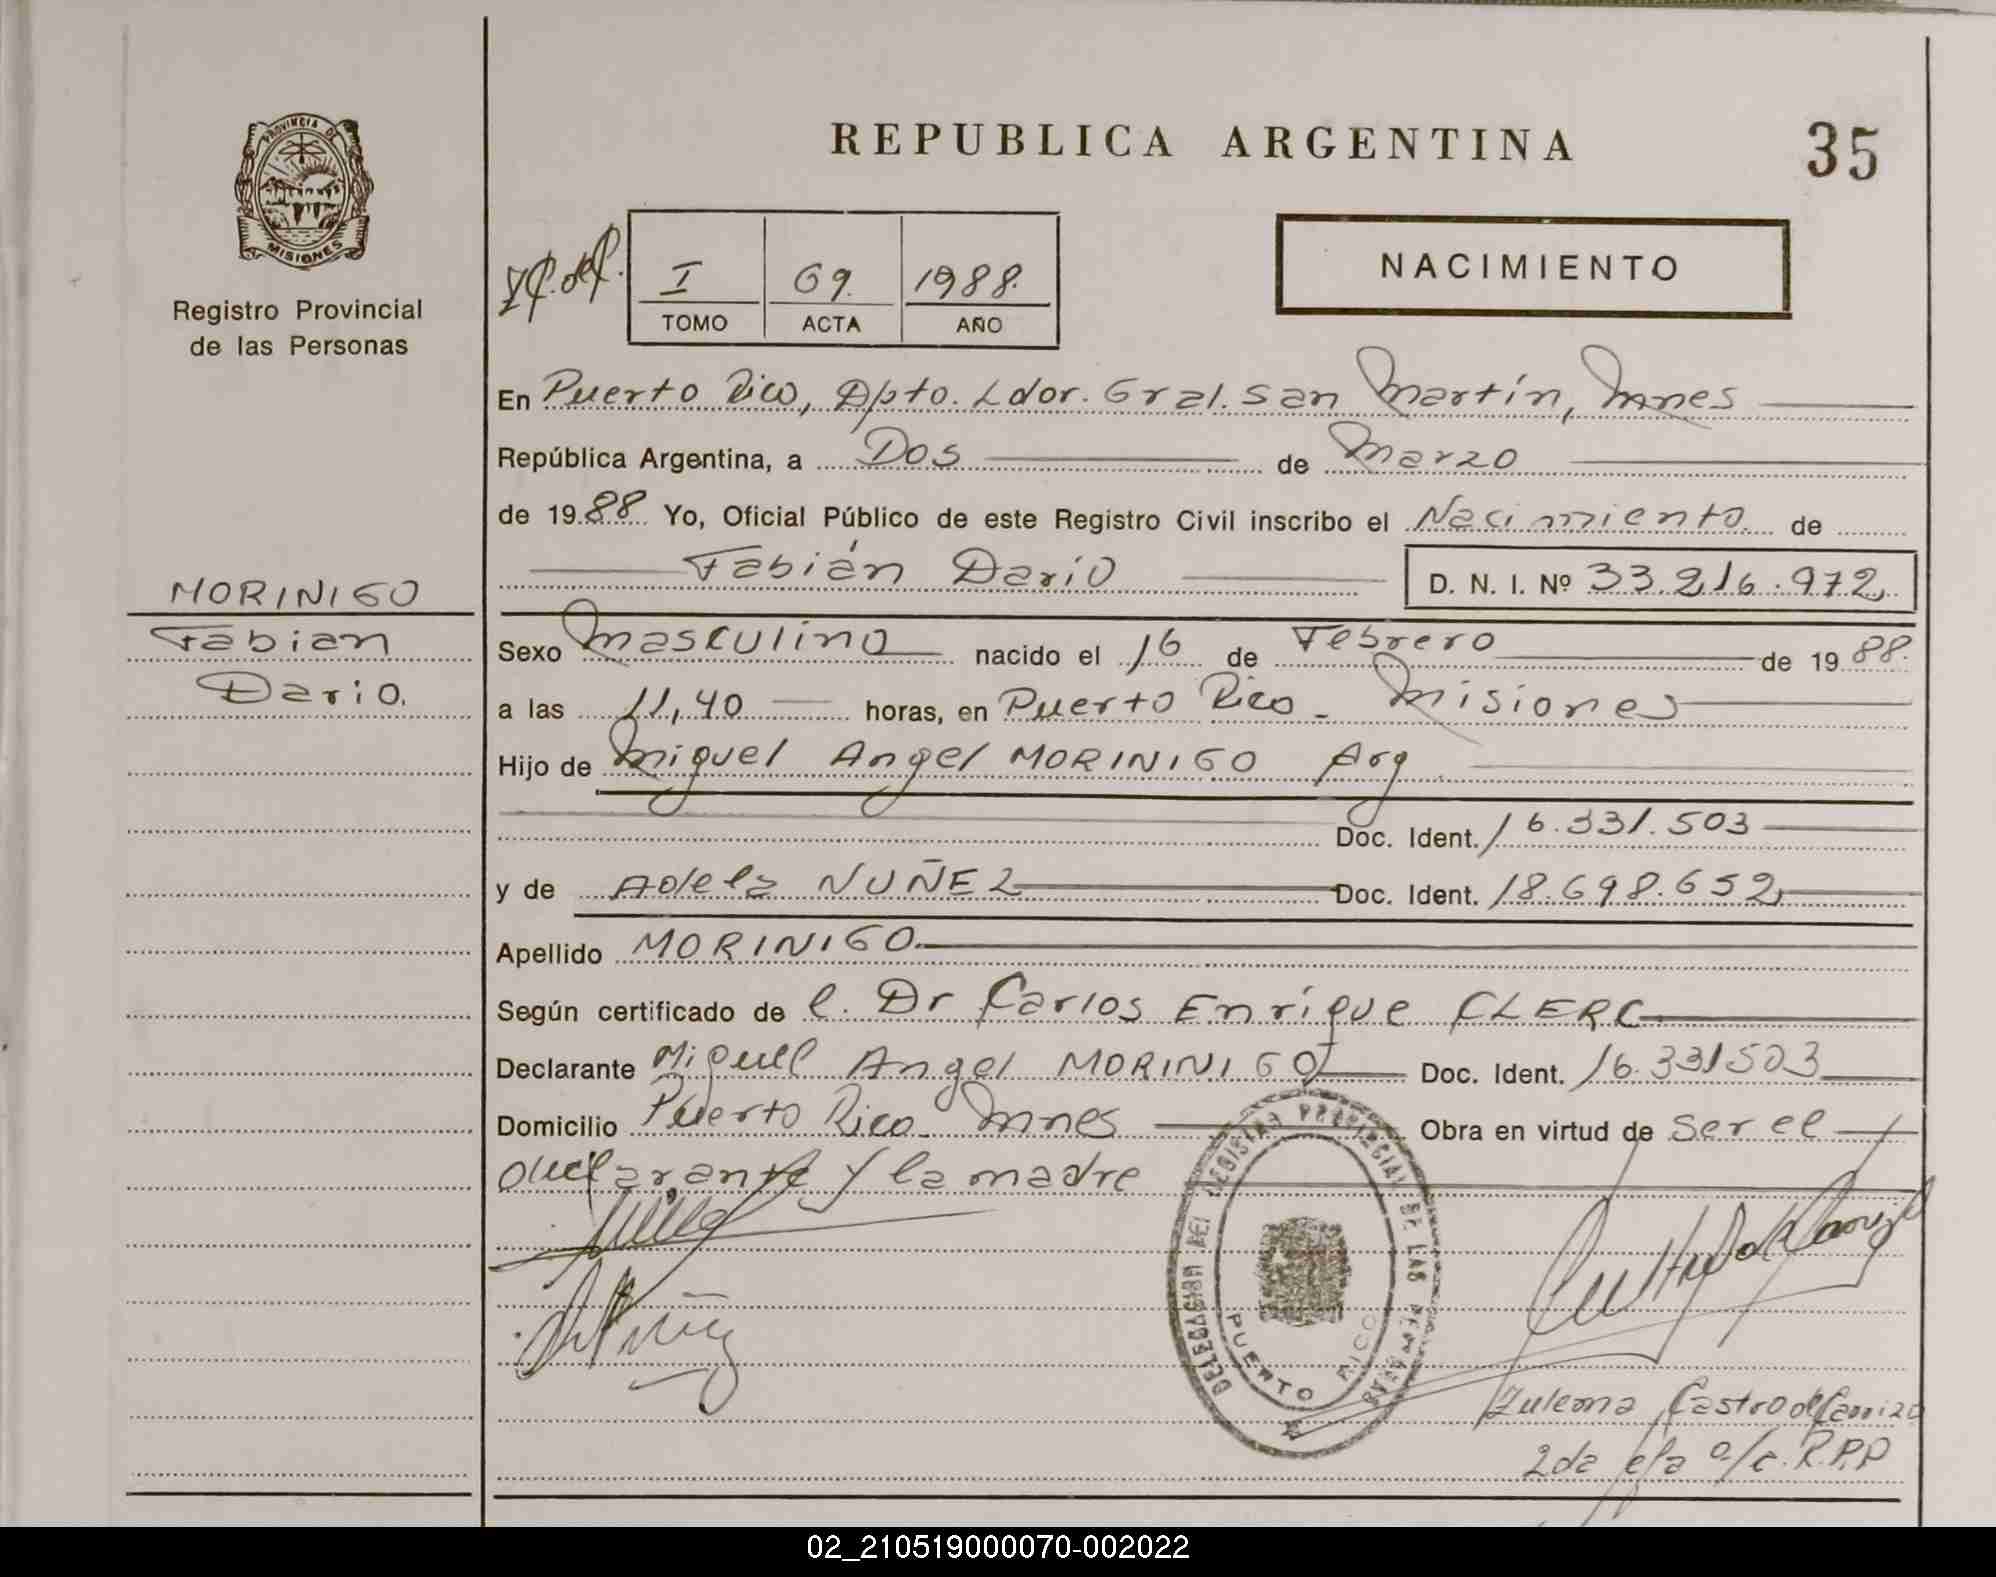 REPUBLICA ARGENTINA
35
PROVINCIA DE
MISIONES
Registro Provincial
de las Personas
I
69.
1988.
TOMO
ACTA
AÑO
NACIMIENTO
En Puerto Rico, Dpto. Ldor. Gral. San Martín, Mnes
República Argentina, a Dos de Marzo
de 1988 Yo, Oficial Público de este Registro Civil inscribo el Nacimiento de
Fabián Darío
D. N. I. Nº 33.216.972
MORINIGO
Fabian
Dario.
Sexo Masculino nacido el 16 de Febrero de 1988.
a las 11,40 horas, en Puerto Rico - Misiones
Hijo de Miguel Angel MORINIGO Arg.
Doc. Ident. 16.331.503
y de Adela NUÑEZ Doc. Ident. 18.698.652
Apellido MORINIGO.
Según certificado de l. Dr Carlos Enrique CLERC
Declarante Miguel Angel MORINIGO Doc. Ident. 16.331503
Domicilio Puerto Rico - Mnes Obra en virtud de ser el
declarante y la madre
DELEGACION DEL REGISTRO PROVINCIAL DE LAS PERSONAS
PUERTO RICO
Zulema Castro de Carrizo
2da Jefa a/c. R.P.P
02_210519000070-002022